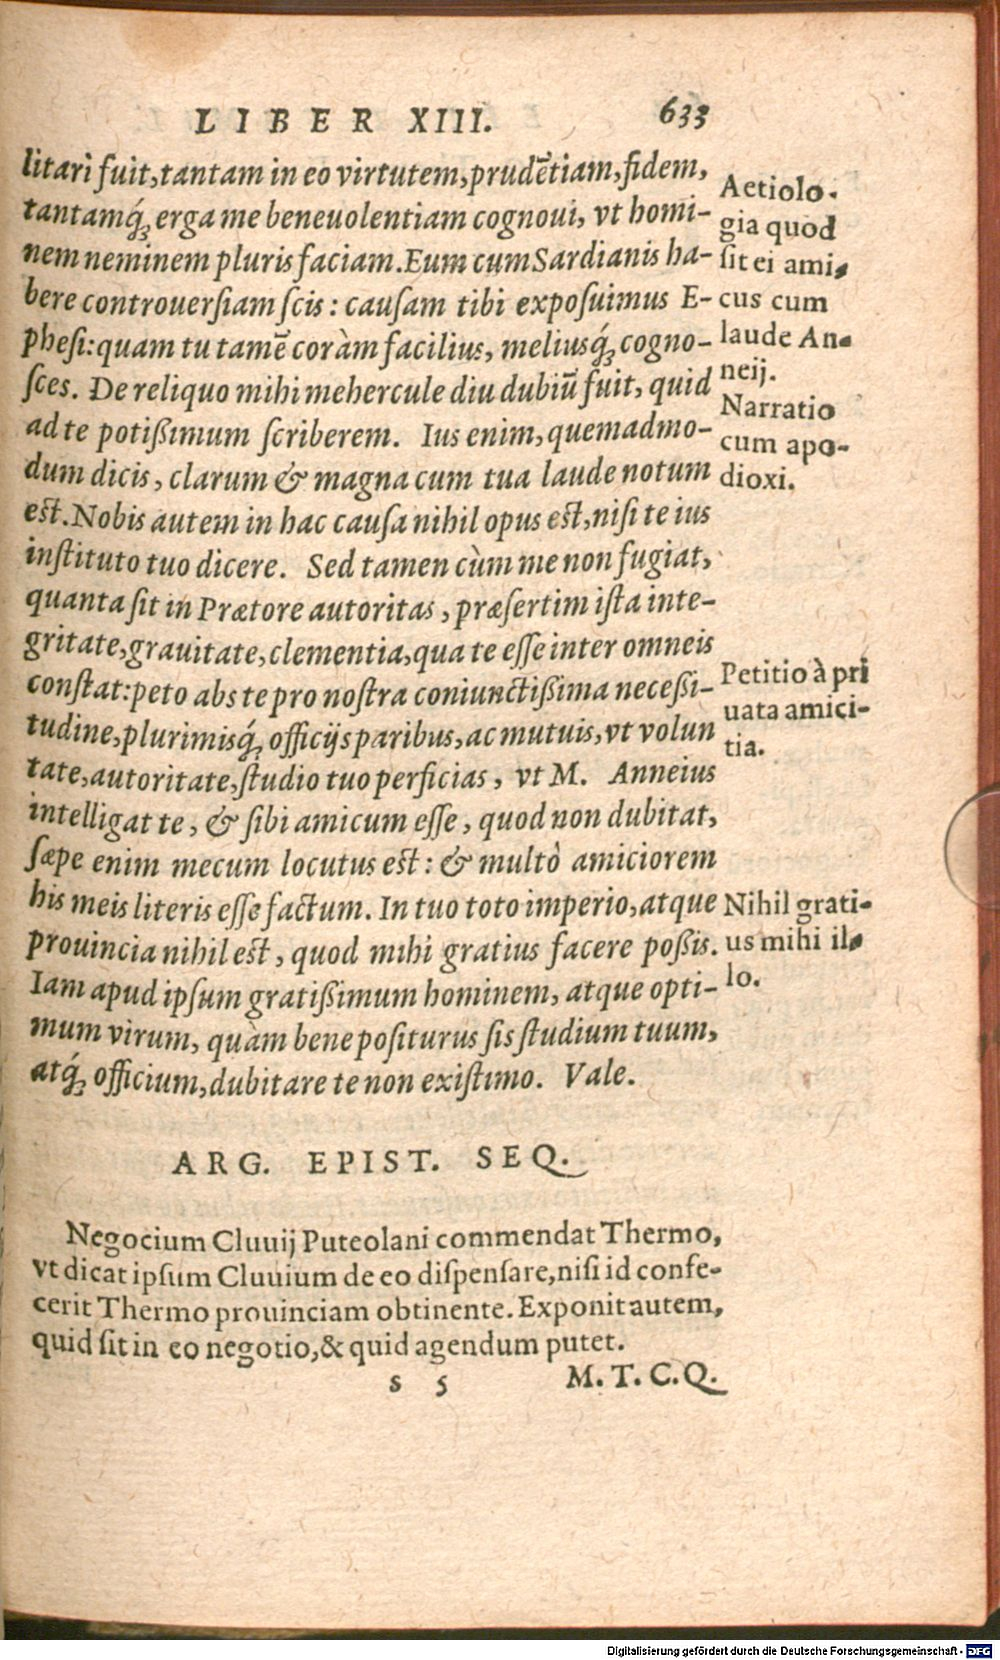 LIBER XIII. 633
litari fuit, tantam in eo virtutem, prudẽtiam, fidem,
tantamq́ꝫ erga me beneuolentiam cognoui, vt homi-
nem neminem pluris faciam. Eum cum Sardianis ha-
bere controuersiam scis: causam tibi exposuimus E-
phesi: quam tu tamẽ coràm facilius, meliusq́ꝫ cogno-
sces. De reliquo mihi mehercule diu dubiũ fuit, quid
ad te potißimum scriberem. Ius enim, quemadmo-
dum dicis, clarum & magna cum tua laude notum
est. Nobis autem in hac causa nihil opus est, nisi te ius
instituto tuo dicere. Sed tamen cùm me non fugiat,
quanta sit in Prætore autoritas, præsertim ista inte-
gritate, grauitate, clementia, qua te esse inter omneis
constat: peto abs te pro nostra coniunctißima neceßi-
tudine, plurimisq́ꝫ officijs paribus, ac mutuis, vt volun
tate, autoritate, studio tuo perficias, vt M. Anneius
intelligat te, & sibi amicum esse, quod non dubitat,
sæpe enim mecum locutus est: & multò amiciorem
his meis literis esse factum. In tuo toto imperio, atque
prouincia nihil est, quod mihi gratius facere poßis.
Iam apud ipsum gratißimum hominem, atque opti-
mum virum, quàm bene positurus sis studium tuum,
atq́ꝫ officium, dubitare te non existimo. Vale.
Aetiolo-
gia quod
sit ei ami-
cus cum
laude An-
neij.
Narratio
cum apo-
dioxi.
Petitio à pri
uata amici-
tia.
Nihil grati-
us mihi il-
lo.
ARG. EPIST. SEQ.
Negocium Cluuij Puteolani commendat Thermo,
vt dicat ipsum Cluuium de eo dispensare, nisi id confe-
cerit Thermo prouinciam obtinente. Exponit autem,
quid sit in eo negotio, & quid agendum putet.
s 5 M. T. C. Q.
Digitalisierung gefördert durch die Deutsche Forschungsgemeinschaft - DFG